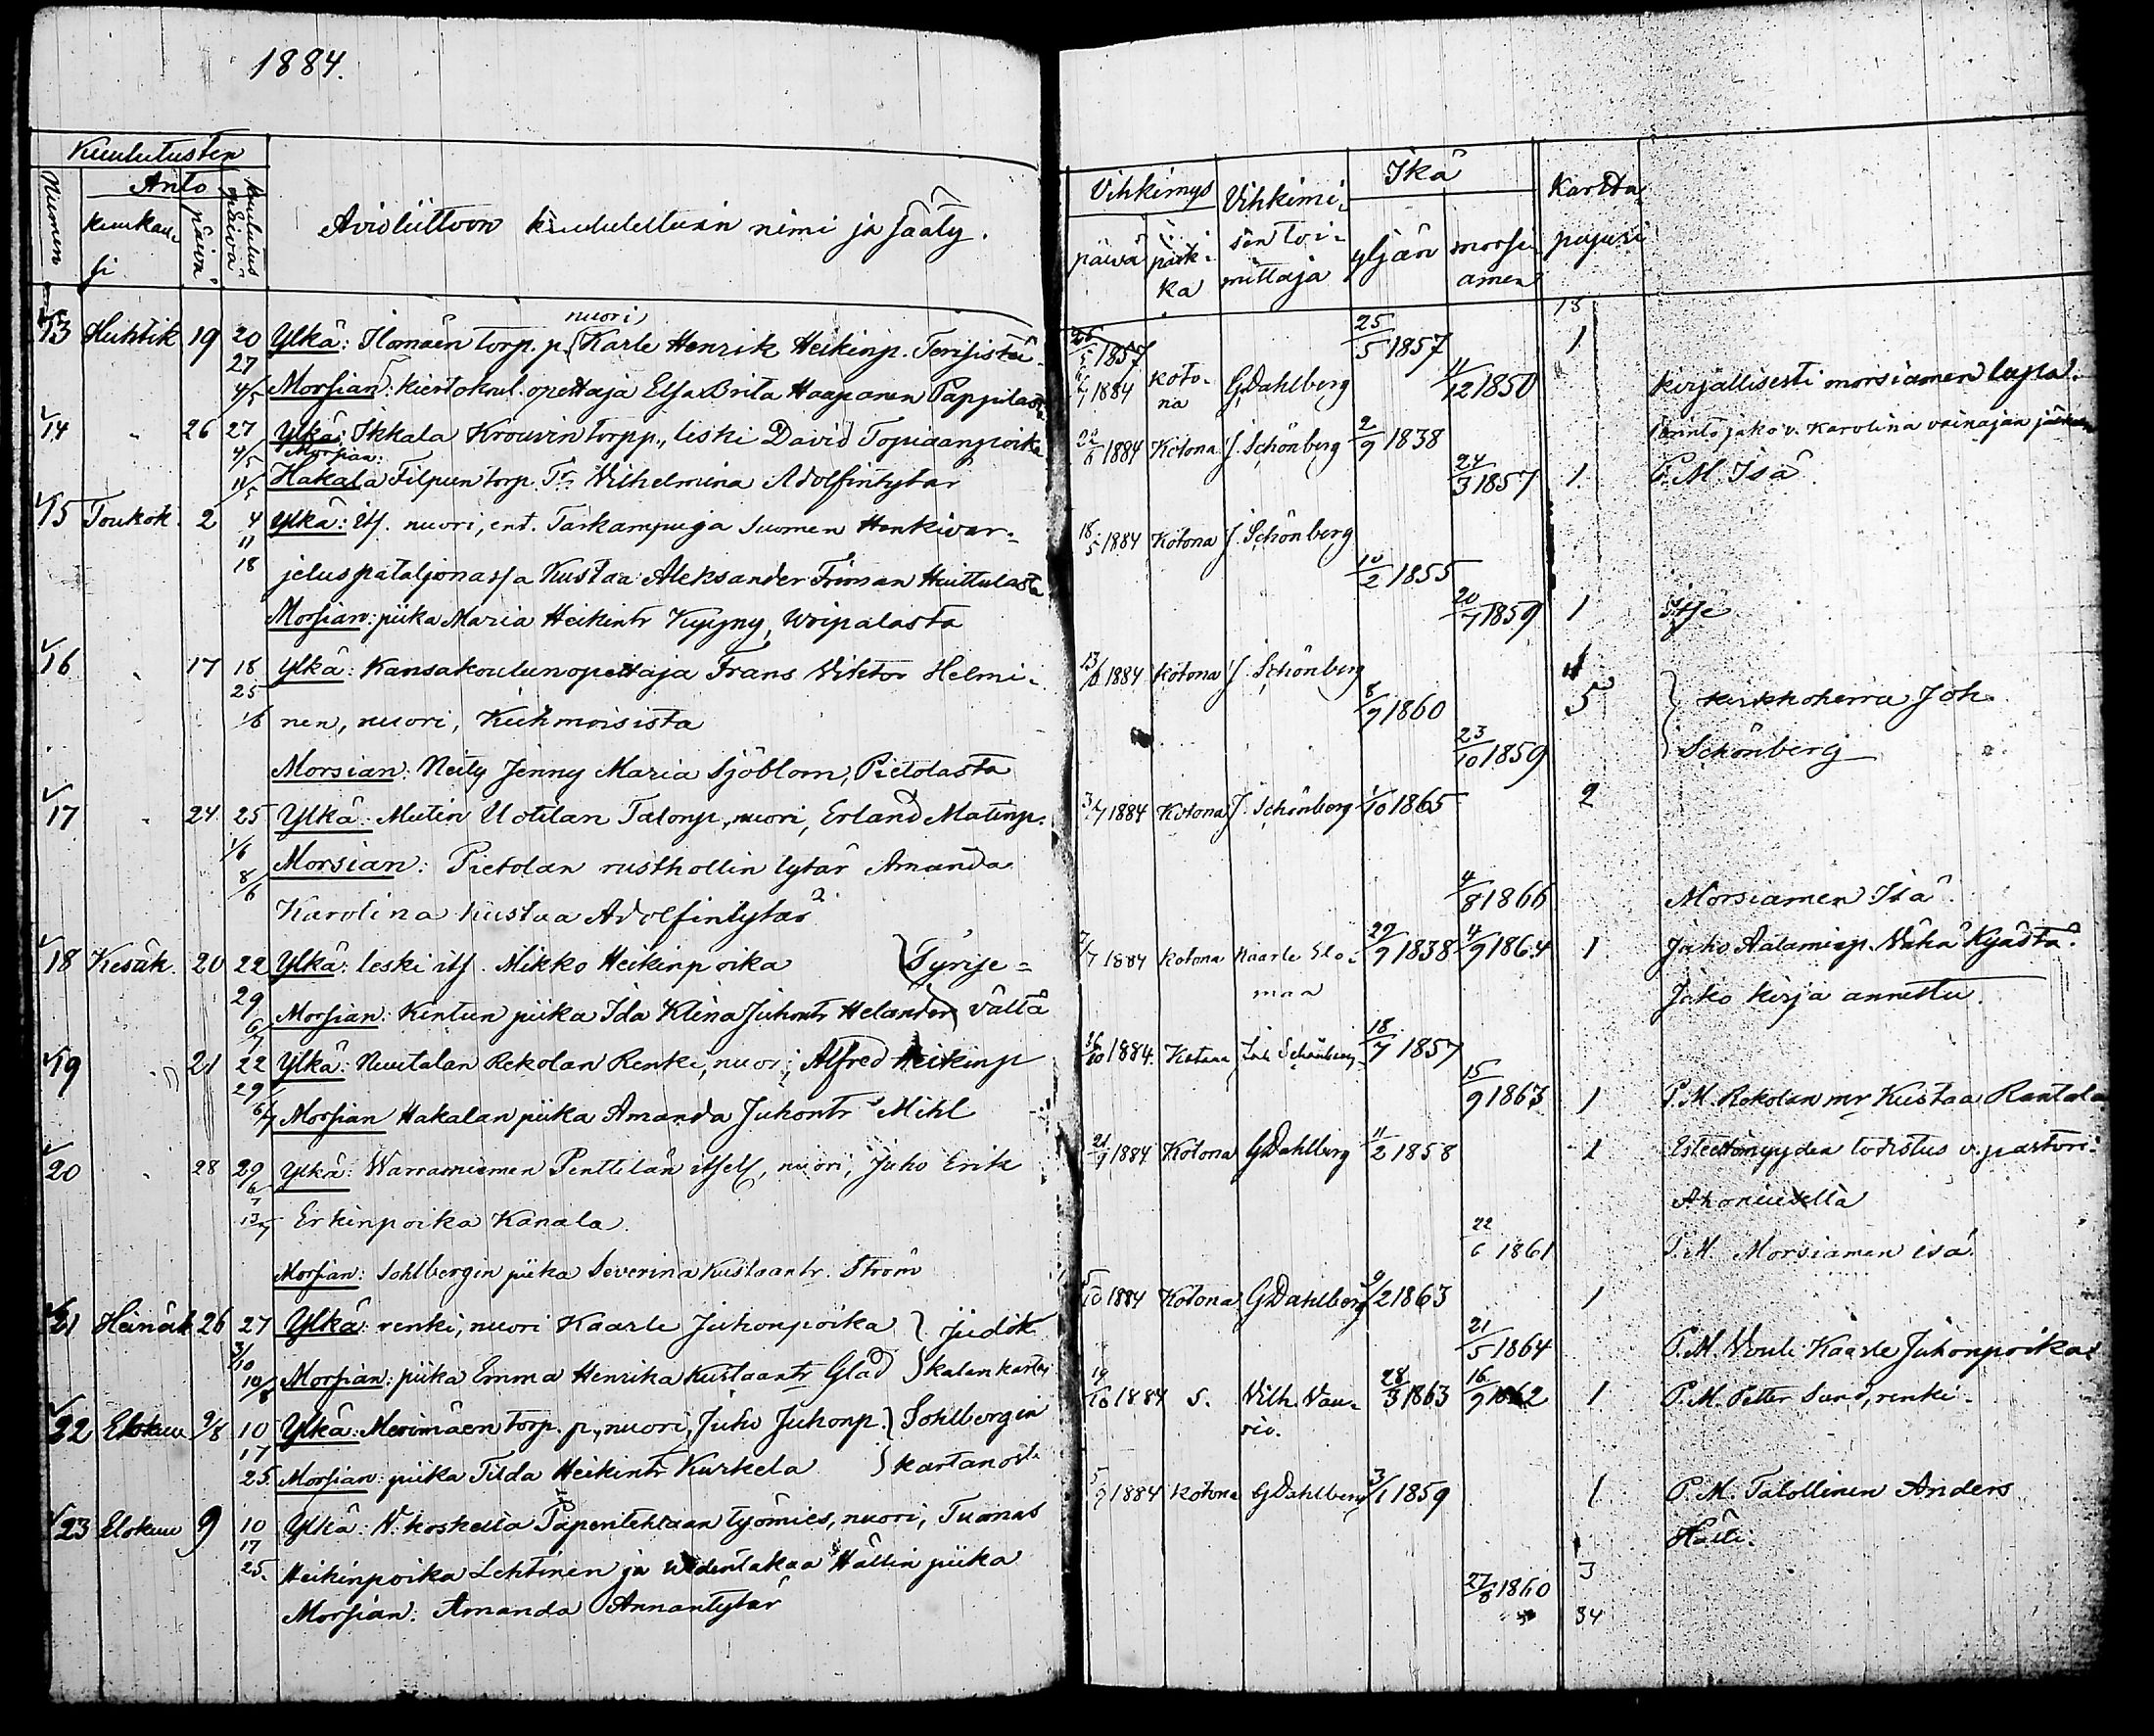 1884.
Kuulutusten
Numero
Anto
kuukau-
si
päivä
kuulutus
päivä
Avioliittoon kuulutettuin nimi ja sääty.
13 Huhtik 19 20 Ylkä: Ilomäen torp. p. nuori, Karle Henrik Heikinp.
27
4/5 Morsian: kiertokoul. opettaja Elsa Brita Haapanen Pappilasta
14 " 26 27 Ylkä: Ikkala Krouvin torpp., leski David
4/5 Morsian:
11/5 Hakala Filpun torp. Tr Wilhelmina Adolfintytär
15 Toukok. 2 4 Ylkä: its. nuori, ent. Tarkampuja Suomen Henkivar-
11
18 jeluspataljonassa Kustaa Aleksander Friman Huittulasta
Morsian: piika Maria Heikintr Kyyny,
16 " 17 18 Ylkä: Kansakoulunopettaja Frans Viktor Helmi-
25
1/6 nen, nuori, Kuhmoisista
Morsian: Neity Jenny Maria Sjöblom, Pietolasta
17 " 24 25 Ylkä: Mutin Uotilan Talonp., nuori, Erland Matinp.
1/6 Morsian: Pietolan rusthollin tytär Amanda
8/6
Karolina Kustaa Adolfintytär
18 Kesäk. 20 22 Ylkä: leski its. Mikko Heikinpoika } Syrje-
29
6/7 Morsian: Kintun piika Ida Klena Juhontr Helander } vältä
19 " 21 22 Ylkä: Nuutalan Rekolan Renki, nuori, Alfred Heikinp
29
6/7 Morsian Hakalan piika Amanda Juhontr Mihl
20 " 28 29 Ylkä: Warramiemen Penttilän itsell, nuori, Juho Erik
6/7
13/7 Erkinpoika Kanala.
Morsian: Sohlbergin piika Severina Kustaantr. Ström
21 Heinäk 26 27 Ylkä: renki, nuori Kaarle Juhonpoika }
3/
10/8 Morsian: piika Emma Henrika Kustaantr Glad }
22 Elokuu 9/8 10 Ylkä: Merimäen torp. p., nuori, Juho Juhonp. } Sohlbergin
17
25. Morsian: piika Tilda Heikintr Kurkela } kartanosta
23 Elokuu 9 10 Ylkä: V. koskella Paperitehtaan työmies, nuori, Tuomas
17
25. Heikinpoika Lehtinen ja Hällin piika
Morsian: Amanda Annantytär
Vihkimys
päivä
paik-
ka
Vihkimi-
sen toi-
mittaja
Ikä
yljän
morsi-
amen
Kartta
paperi
15
25/5 1857 1
1884 koto-
na G Dahlberg 11/12 1850 kirjallisesti morsiamen lupa.
22/6 1884 Kotona J. Schönberg 2/9 1838
24/3 1857 1 P. M. Isä
18/5 1884 Kotona J. Schönberg
10/2 1855
20/7 1859 1 Itse
13/6 1884 Kotona J. Schönberg
8/9 1860 5 } kirkkoherra Joh.
23/10 1859 } Schönberg
3/7 1884 Kotona J. Schönberg 1/10 1865 2
4/8 1866 Morsiamen Isä.
7/7 1884 Kotona Kaarle Elo-
maa 29/9 1838 4/9 1864 1 Juho Aatamip. Vähä Kyästä.
Jako kirja annettu.
16/10 1884. Kotona Joh Schönberg 18/7 1857
15/9 1863 1 P. M. Rekolan mr Kustaa Rantala
21/9 1884 Kotona G Dahlberg 11/2 1858 1 Esteettömyyden todistus v. pastori
22/6 1861 P. M. Morsiamen isä.
5/10 1884 Kotona G Dahlberg 9/2 1863 1
21/5 1864 P. M. Kaarle Juhonpoika
19/10 1884 S. Vilh. Vau-
rio. 28/3 1863 16/9 1862 1 P. M. Petter Sund, renki.
5/9 1884 Kotona G Dahlberg 3/1 1859 1 P. M. Talollinen Anders
Hälli.
27/8 1860 3
34